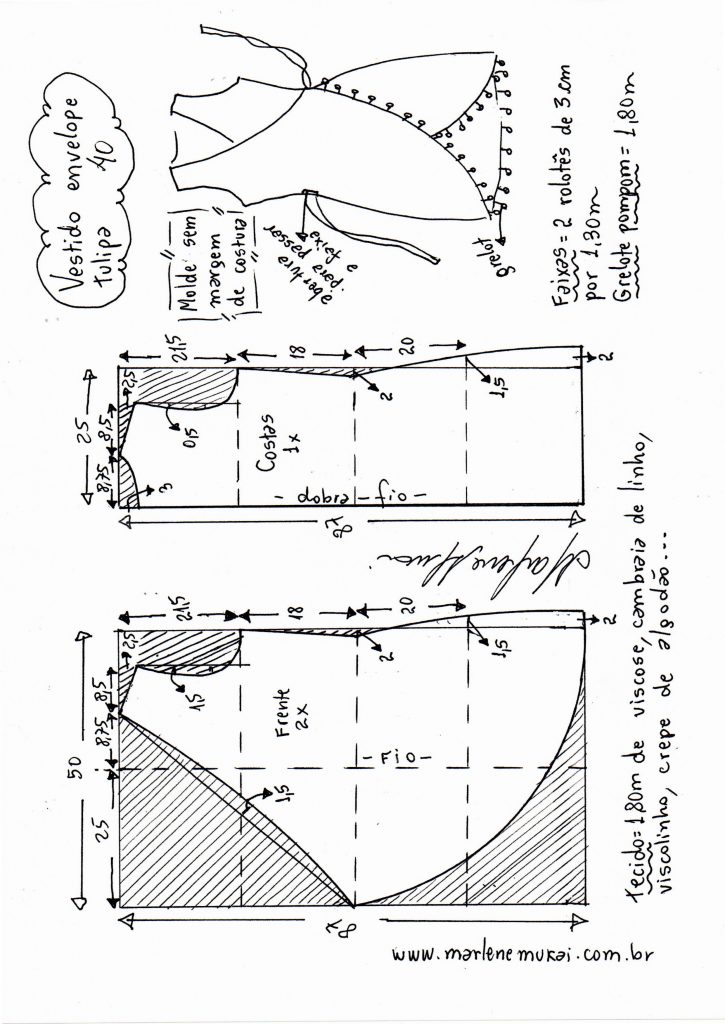 Vestido envelope
tulipa 40
"Molde sem
margem
de costura"
abertura
para passar
a faixa
grelot
Faixas = 2 rolotês de 3 cm
por 1,30m
Grelote pompom = 1,80m
25
8,75
8,5
2,5
21,5
18
20
3
0,5
2
1,5
2
Costas
1x
- dobra - fio -
87
Marlene Mukai
50
25
8,75
8,5
2,5
21,5
18
20
1,5
2
1,5
2
1,5
Frente
2x
- FIO -
87
Tecido = 1,80m de viscose, cambraia de linho,
viscolinho, crepe de algodão...
www.marlenemukai.com.br